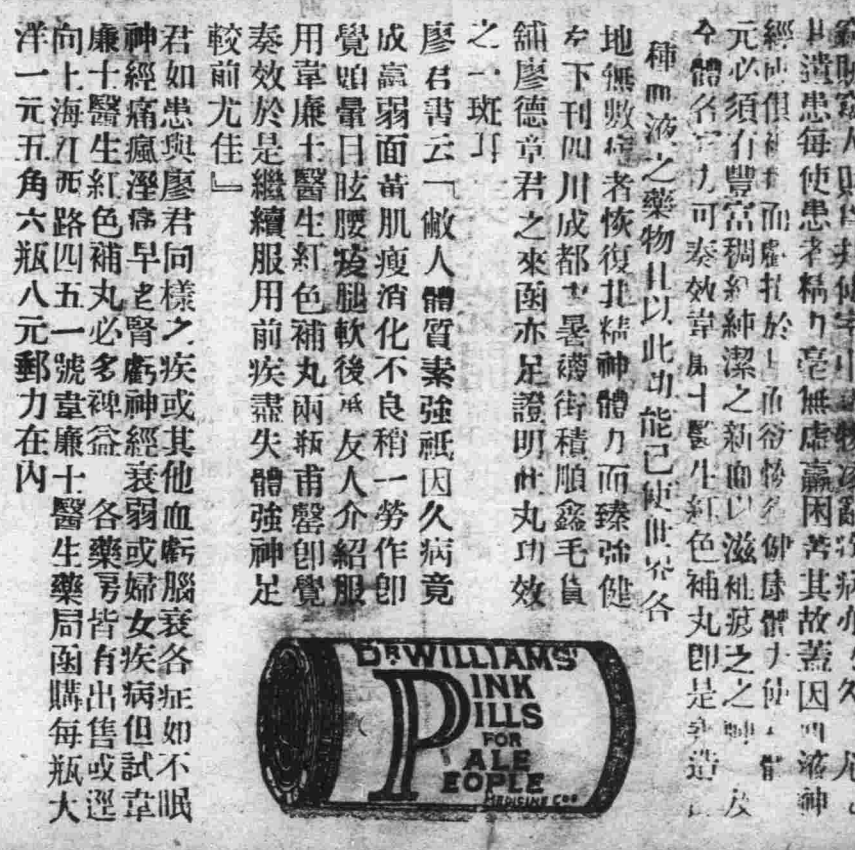 其遺患每使患者精力毫無虛羸困苦其故蓋因血液神
元必須有豐富稠純潔之新血以滋補之
全體各部方可奏效韋廉士醫生紅色補丸卽是製造
種血液之藥物其以此功能已使世界各
地無數患者恢復其精神體力而臻強健
左下刊四川成都暑襪街積順鑫毛貨
舖廖德章君之來函亦足證明此丸功效
之一斑耳
廖君書云「敝人體質素強祗因久病竟
成羸弱面黃肌瘦消化不良稍一勞作卽
覺頭暈目眩腰痠腿軟後承友人介紹服
用韋廉士醫生紅色補丸兩瓶甫罄卽覺
奏效於是繼續服用前疾盡失體強神足
較前尤佳』
君如患與廖君同樣之疾或其他血虧腦衰各症如不眠
神經痛瘋溼痛早老腎虧神經衰弱或婦女疾病但試韋
廉士醫生紅色補丸必多裨益 各藥房皆有出售或逕
向上海江西路四五一號韋廉士醫生藥局函購每瓶大
洋一元五角六瓶八元郵力在內
DR WILLIAMS'
PINK
PILLS
FOR
PALE
PEOPLE
MEDICINE CO